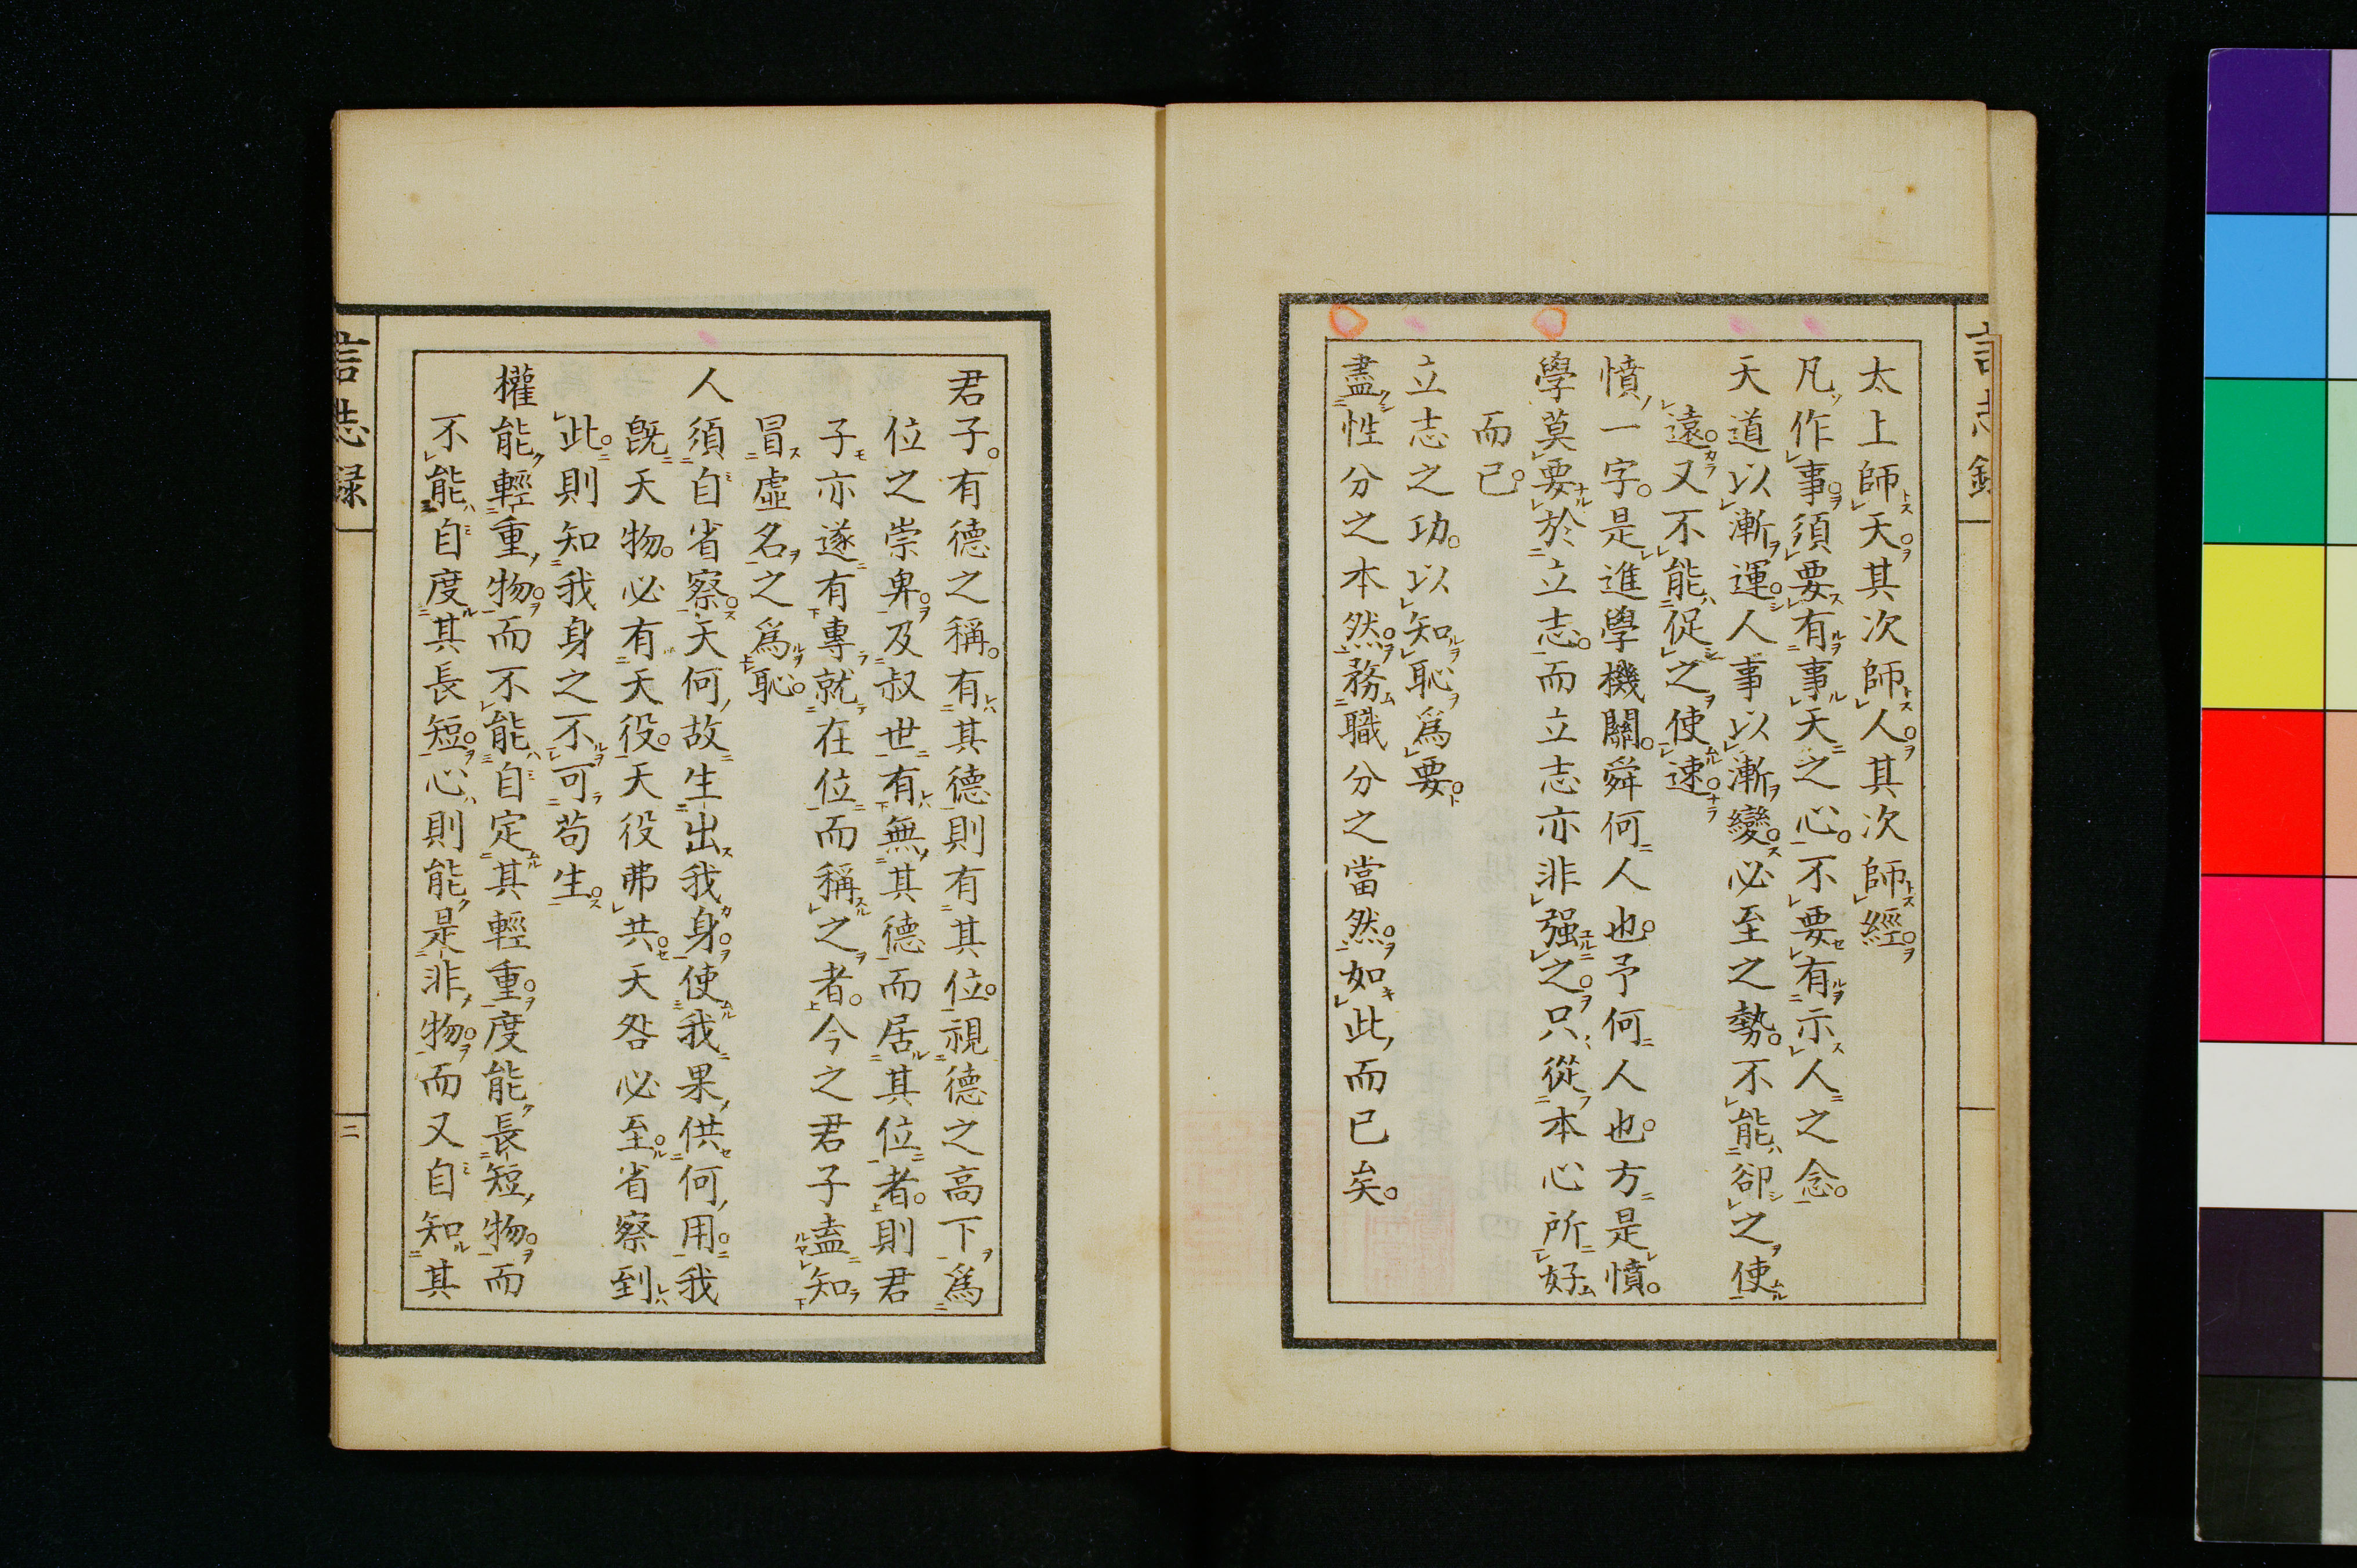 言志錄
太上師天。其次師人。其次師經。
凡作事。須要有事天之心。不要有示人之念。
天道以漸運。人事以漸變。必至之勢。不能卻之使
遠。又不能促之使速。
憤一字。是進學機關。舜何人也。予何人也。方是憤。
學莫要於立志。而立志亦非强之。只從本心所好
而已。
立志之功。以知恥爲要。
盡性分之本然。務職分之當然。如此而已矣。
君子。有德之稱。有其德則有其位。視德之高下爲
位之崇卑。及叔世有無其德而居其位者。則君
子亦遂有專就在位而稱之者。今之君子盍知
冒虛名之爲恥。
人須自省察。天何故生出我身。使我果供何用。我
旣天物。必有天役。天役弗共。天咎必至。省察到
此。則知我身之不可苟生。
權能輕重物。而不能自定其輕重。度能長短物。而
不能自度其長短。心則能是非物。而又自知其
言志録
二